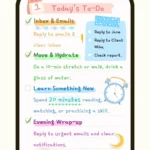 1 Today's To-Do
Inbox & Emails
Reply to emails &
clear inbox
Reply to Jane
Reply to Client
Mike
Check report.
Move & Hydrate
Do a 10-min stretch or walk, drink a
glass of water.
Learn Something New
Spend 20 minutes reading,
watching, or practicing a skill.
Evening Wrap-up
Reply to urgent emails and clear
notifications.